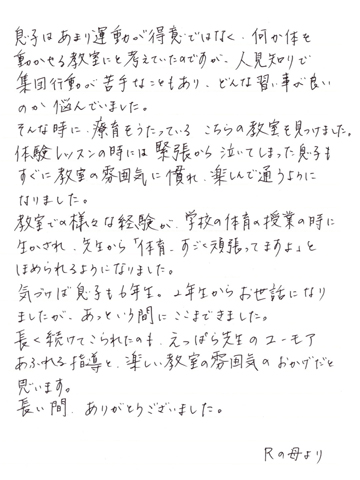 息子はあまり運動が得意ではなく、何か体を
動かせる教室にと考えていたのですが、人見知りで
集団行動が苦手なこともあり、どんな習い事が良い
のか悩んでいました。
そんな時に、療育をうたっている こちらの教室を見つけました。
体験レッスンの時には緊張から泣いてしまった息子も
すぐに教室の雰囲気に慣れ、楽しんで通うように
なりました。
教室での様々な経験が、学校の体育の授業の時に
生かされ、先生から「体育、すごく頑張ってますよ」と
ほめられるようになりました。
気づけば息子も6年生。2年生からお世話になり
ましたが、あっという間にここまできました。
長く続けてこられたのも、えっぱら先生のユーモア
あふれる指導と、楽しい教室の雰囲気のおかげだと
思います。
長い間、ありがとうございました。
Rの母より